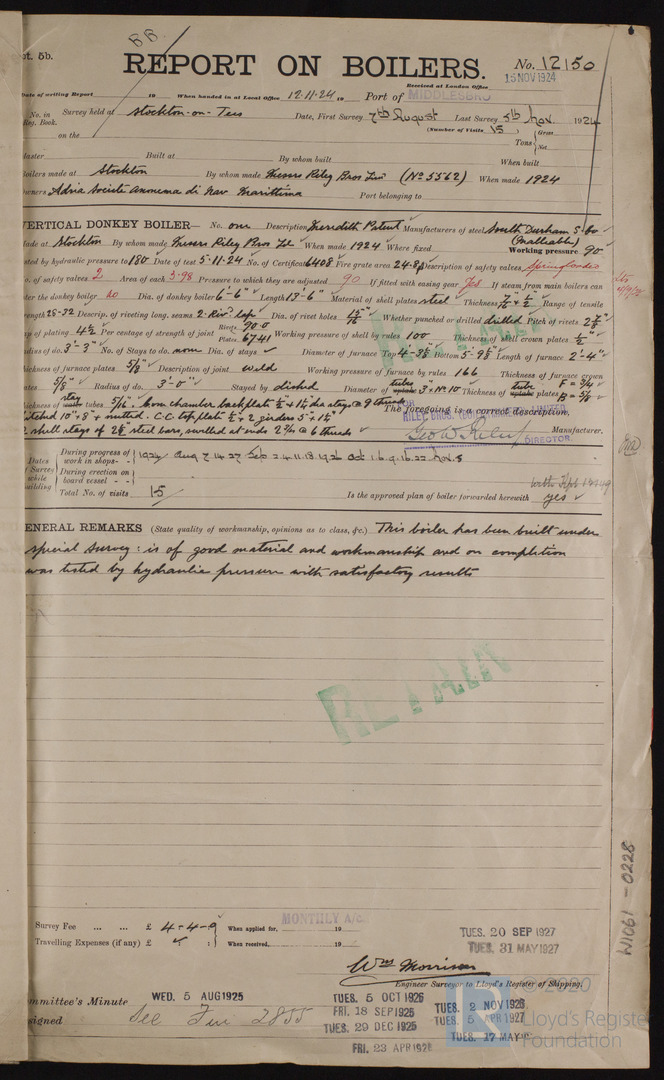 pt. 5b.
REPORT ON BOILERS.
No. 12150
15 NOV 1924
Date of writing Report 19 When handed in at Local Office 12.11.24 19 Port of MIDDLESBRO
Received at London Office
No. in Survey held at Stockton-on-Tees Date, First Survey 7th August Last Survey 5th Nov. 1924
Reg. Book. (Number of Visits 15 )
on the Tons { Gross Net
Master Built at By whom built When built
Boilers made at Stockton By whom made Messrs Riley Bros Lim (No 5562) When made 1924
Owners Adria Societa Anonima di Nav Marittima Port belonging to
VERTICAL DONKEY BOILER— No. one Description Meredith Patent Manufacturers of steel South Durham S. Co (Malleable)
Made at Stockton By whom made Messrs Riley Bros Ld When made 1924 Where fixed Working pressure 90
tested by hydraulic pressure to 180 Date of test 5.11.24 No. of Certificate 6408 Fire grate area 24.8 Description of safety valves Spring loaded
No. of safety valves 2 Area of each 3.98 Pressure to which they are adjusted 90 If fitted with easing gear Yes If steam from main boilers can
enter the donkey boiler no Dia. of donkey boiler 6'-6" Length 13'-6" Material of shell plates steel Thickness Range of tensile
strength 28-32 Descrip. of riveting long. seams 2 Riv. Lap Dia. of rivet holes 15/16 Whether punched or drilled drilled Pitch of rivets 2 7/8
Lap of plating 4 1/2 Per centage of strength of joint Rivets 90.0 Plates 67.41 Working pressure of shell by rules 100 Thickness of shell crown plates 1/2"
Radius of do. 3'-3" No. of Stays to do. none Dia. of stays Diameter of furnace Top 4-3 5/8 Bottom 5-9 5/8 Length of furnace 2'-4"
Thickness of furnace plates 5/8" Description of joint weld Working pressure of furnace by rules 166 Thickness of furnace crown
plates 5/8" Radius of do. 3'-0" Stayed by dished Diameter of tube 3" No 10 Thickness of tube plates F = 3/4 B = 5/8
Thickness of stay tubes 5/16. Com chamber backplate @ 9 threads
pitched 10" × 8" & nutted. C.C. top plate 1/2" & 2 girders
2 shell stays of steel bars, swelled at ends @ 6 threads
The foregoing is a correct description,
RILEY BROS. LIMITED.
Geo W Riley Manufacturer.
DIRECTOR.
Dates of Survey while building
During progress of work in shops- - 1924 Aug 7 14 27 Sep 2 4 11 18 19 26 Oct 1 6 9 16 22 Nov. 5
During erection on board vessel - -
Total No. of visits 15
Is the approved plan of boiler forwarded herewith yes
GENERAL REMARKS (State quality of workmanship, opinions as to class, &c.) This boiler has been built under
special survey: is of good material and workmanship and on completion
was tested by hydraulic pressure with satisfactory results
RETAIN
Survey Fee ... ... £ 4-4-0 When applied for, 19
MONTHLY A/c.
Travelling Expenses (if any) £ : : When received, 19
TUES. 20 SEP 1927
TUES. 31 MAY 1927
Wm Morrison
Engineer Surveyor to Lloyd's Register of Shipping.
Committee's Minute WED. 5 AUG 1925
Assigned See Fiu 2855
TUES. 5 OCT 1926
FRI. 18 SEP 1925
TUES. 29 DEC 1925
FRI. 23 APR 1926
TUES. 2 NOV 1926
TUES. 5 APR 1927
TUES. 17 MAY
W1061-0228
© 2020
Lloyd's Register
Foundation